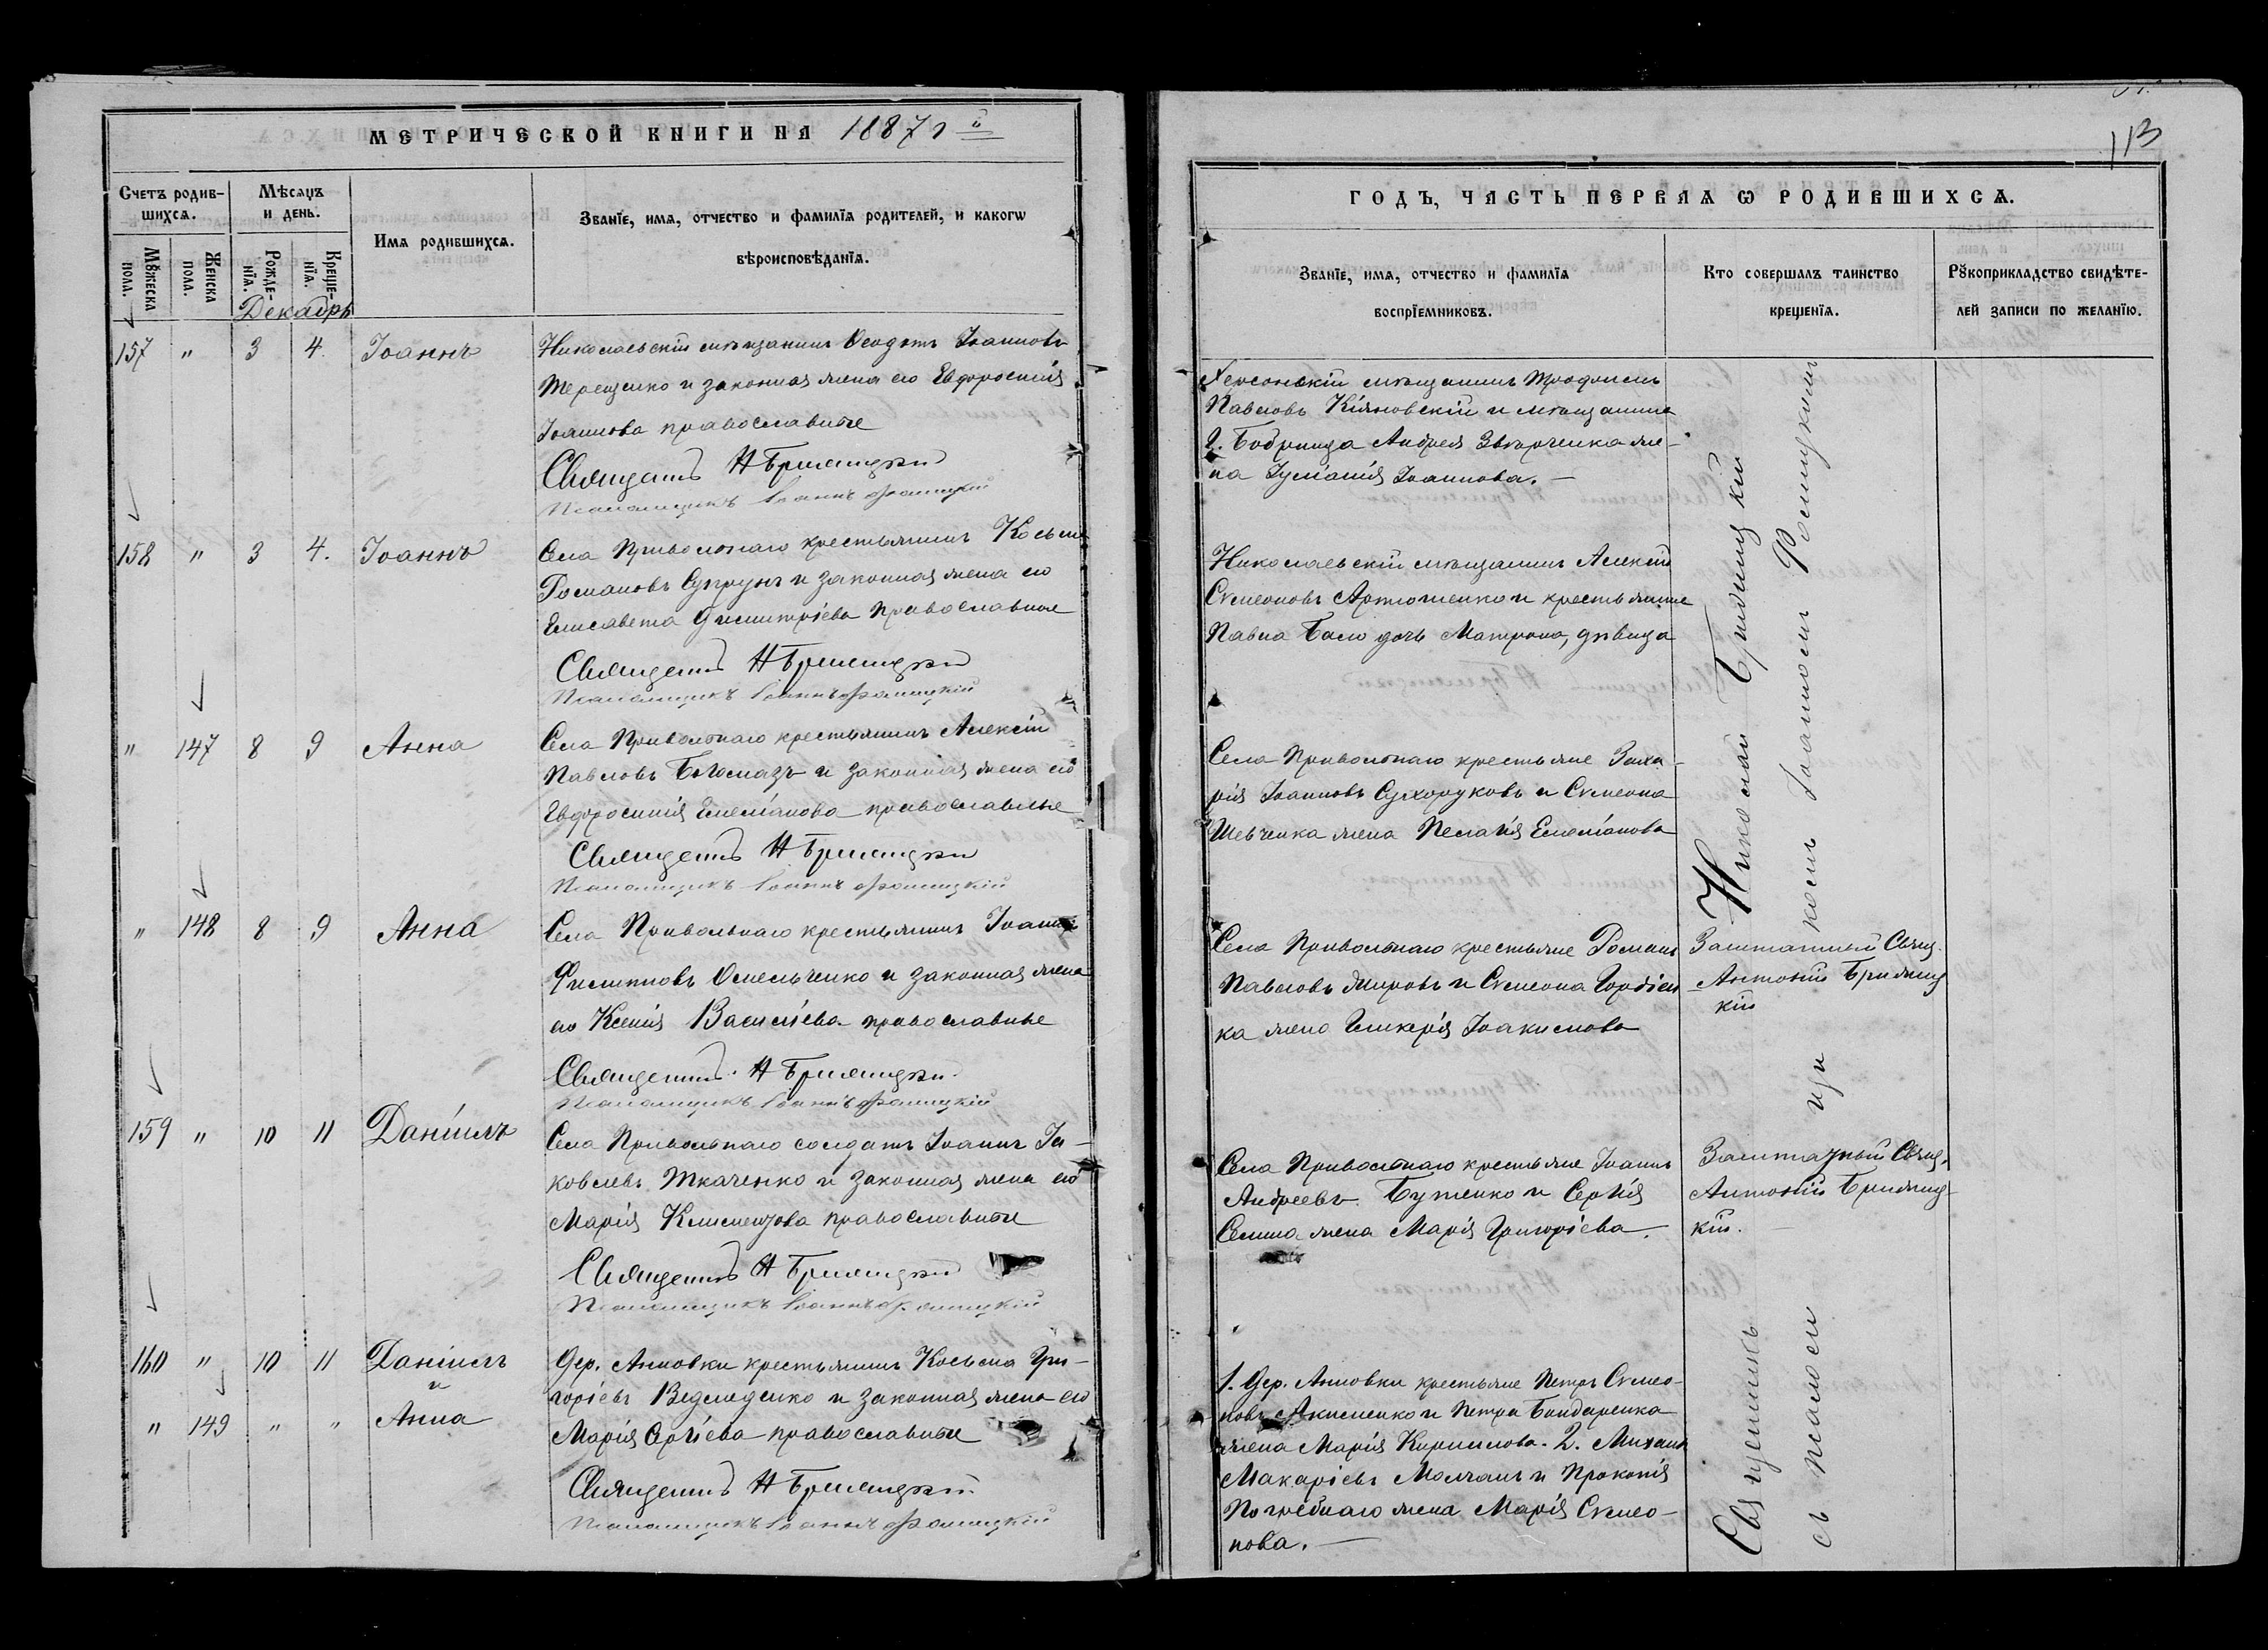 МЕТРИЧЕСКОЙ КНИГИ НА 1887 й
Счетъ родив-
шихся.
Мѣсяцъ
и день.
Имя родившихся.
Званїе, имя, отчество и фамилїя родителей, и какогѡ
вѣроисповѣданїя.
Мꙋжеска
пола.
Женска
пола.
Рожде-
нїя.
Креще-
нїя.
Декабрь
157 " 3 4. Іоаннъ
Николаевскій мѣщанинъ Ѳеодотъ Іоанновъ
Терещенко и законная жена его Евфросинія
Іоаннова православные
Священникъ Н Бриляицкій
Псаломщикъ Іоаннъ Фомицкій
158 " 3 4. Іоаннъ
Села Привольнаго крестьянинъ Косьма
Романовъ Супрунъ и законная жена его
Елисавета Димитріева православные
Священникъ Н Бриляицкій
Псаломщикъ Іоаннъ Фомицкій
" 147 8 9 Анна
Села Привольнаго крестьянинъ Алексій
Павловъ Богомазъ и законная жена его
Евфросинія Емеліанова православные
Священникъ Н Бриляицкій
Псаломщикъ Іоаннъ Фомицкій
" 148 8 9 Анна
Села Привольнаго крестьянинъ Іоаннъ
Филипповъ Омельченко и законная жена
его Ксенія Василіева православные
Священникъ Н Бриляицкій
Псаломщикъ Іоаннъ Фомицкій
159 " 10 11 Даніилъ
Села Привольнаго солдатъ Іоаннъ Іа-
ковлевъ Ткаченко и законная жена его
Марія Климентова православные
Священникъ Н Бриляицкій
Псаломщикъ Іоаннъ Фомицкій
160 " 10 11 Даніилъ
и
" 149 " " Анна
Дер. Анновки крестьянинъ Косьма Гри-
горіевъ Ведмеденко и законная жена его
Марія Сергіева православные
Священникъ Н Бриляицкій
Псаломщикъ Іоаннъ Фомицкій
113
ГОДЪ, ЧАСТЬ ПЕРВАЯ Ѡ РОДИВШИХСЯ.
Званїе, имя, отчество и фамилїя
воспрїемниковъ.
Кто совершалъ таинство
крещенїя.
Рꙋкоприкладство свидѣте-
лей записи по желанїю.
Херсонскій мѣщанинъ Трофимъ
Павловъ Кіяновскій и мѣщанина
г. Бобринца Андрея Звѣрченка же-
на Іуліанія Іоаннова. —
Николаевскій мѣщанинъ Алексій
Симеоновъ Артюшенко и крестьянина
Павла дочь Матрона, дѣвица
Села Привольнаго крестьяне Заха-
рія Іоанновъ Сухоруковъ и Симеона
Шевченка жена Пелагія Емеліанова
Села Привольнаго крестьяне Романъ
Павловъ Жировъ и Симеона Гордіен
ка жена Гликерія Іоакимова
Заштатный Свящ.
Антоній Бриляиц
кій
Села Привольнаго крестьяне Іоаннъ
Андреевъ Бутенко и Сергія
Семина жена Марія Григоріева.
Заштатный Свящ.
Антоній Бриляиц-
кій.
1. Дер. Анновки крестьяне Петръ Симео-
новъ Акименко и Петра Бондаренка
жена Марія Кириллова. 2. Михаилъ
Макаріевъ Молчанъ и Прокопія
Погребнаго жена Марія Симео-
нова. —
Священникъ Николай Бриляицкій
съ псаломщикомъ Іоанномъ Фомицкимъ